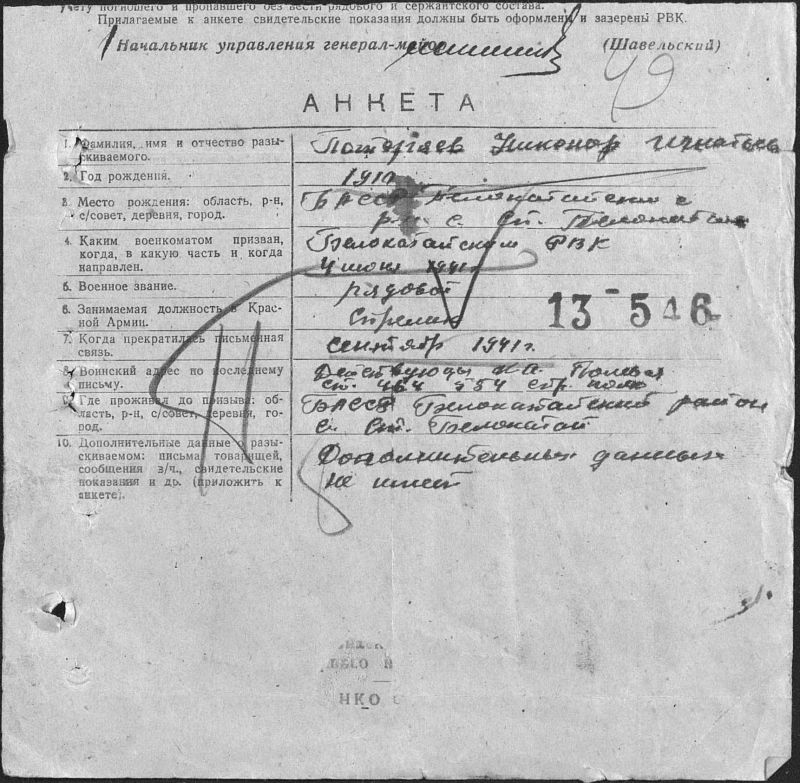 учету погибшего и пропавшего без вести рядового и сержантского состава.
Прилагаемые к анкете свидетельские показания должны быть оформлены и заверены РВК.
Начальник управления генерал-майор (Шавельский)
49
АНКЕТА
1. Фамилия, имя и отчество разы-
скиваемого.
Никонор Игнатьев
2. Год рождения.
1910
3. Место рождения: область, р-н,
с/совет, деревня, город.
БАССР Белокатайский
р-н с. Ст. Белокатай
4. Каким военкоматом призван,
когда, в какую часть и когда
направлен.
Белокатайским РВК
1941г.
5. Военное звание.
рядовой
6. Занимаемая должность в Крас-
ной Армии.
Стрелок
13-546
7. Когда прекратилась письменная
связь.
сентябр 1941г.
8. Воинский адрес по последнему
письму.
Полевая
ст. 464 554 стр. полк
9. Где проживал до призыва: об-
ласть, р-н, с/совет, деревня, го-
род.
БАССР Белокатайский район
с. Ст. Белокатай
10. Дополнительные данные о разы-
скиваемом: письма товарищей,
сообщения в/ч., свидетельские
показания и др. (приложить к
анкете).
Дополнительных данных
не имеет
НКО